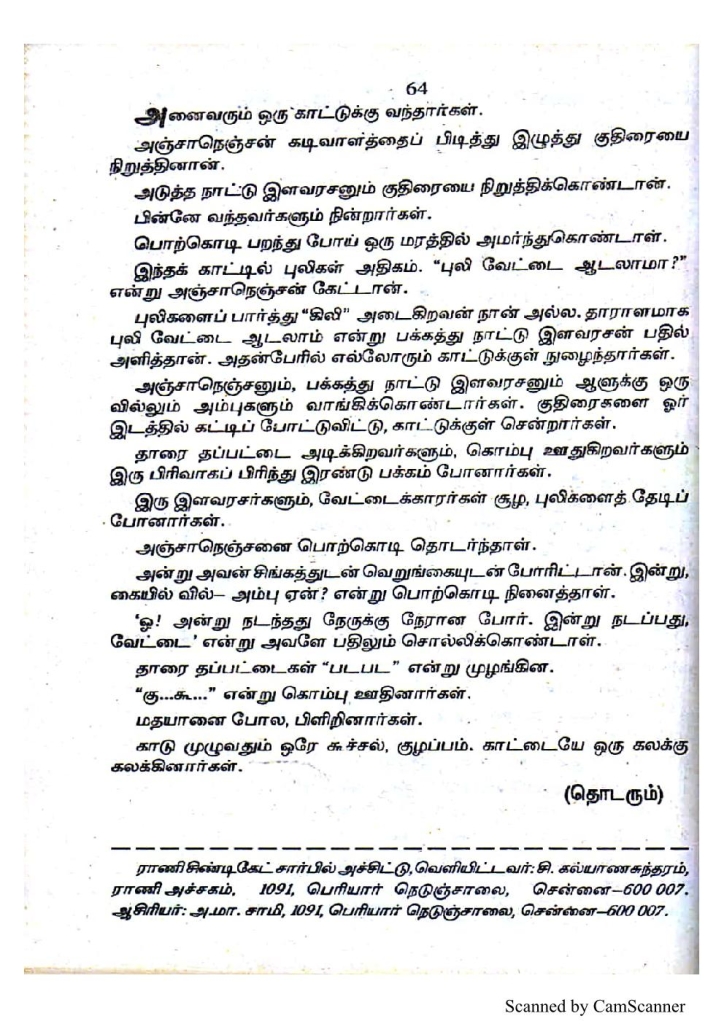 64
அனைவரும் ஒரு காட்டுக்கு வந்தார்கள்.
அஞ்சாநெஞ்சன் கடிவாளத்தைப் பிடித்து இழுத்து குதிரையை
நிறுத்தினான்.
அடுத்த நாட்டு இளவரசனும் குதிரையை நிறுத்திக்கொண்டான்.
பின்னே வந்தவர்களும் நின்றார்கள்.
பொற்கொடி பறந்து போய் ஒரு மரத்தில் அமர்ந்துகொண்டாள்.
இந்தக் காட்டில் புலிகள் அதிகம். “புலி வேட்டை ஆடலாமா?”
என்று அஞ்சாநெஞ்சன் கேட்டான்.
புலிகளைப் பார்த்து “கிலி” அடைகிறவன் நான் அல்ல. தாராளமாக
புலி வேட்டை ஆடலாம் என்று பக்கத்து நாட்டு இளவரசன் பதில்
அளித்தான். அதன்பேரில் எல்லோரும் காட்டுக்குள் நுழைந்தார்கள்.
அஞ்சாநெஞ்சனும், பக்கத்து நாட்டு இளவரசனும் ஆளுக்கு ஒரு
வில்லும் அம்புகளும் வாங்கிக்கொண்டார்கள். குதிரைகளை ஓர்
இடத்தில் கட்டிப் போட்டுவிட்டு, காட்டுக்குள் சென்றார்கள்.
தாரை தப்பட்டை அடிக்கிறவர்களும், கொம்பு ஊதுகிறவர்களும்
இரு பிரிவாகப் பிரிந்து இரண்டு பக்கம் போனார்கள்.
இரு இளவரசர்களும், வேட்டைக்காரர்கள் சூழ, புலிகளைத் தேடிப்
போனார்கள்.
அஞ்சாநெஞ்சனை பொற்கொடி தொடர்ந்தாள்.
அன்று அவன் சிங்கத்துடன் வெறுங்கையுடன் போரிட்டான். இன்று,
கையில் வில்– அம்பு ஏன்? என்று பொற்கொடி நினைத்தாள்.
‘ஓ! அன்று நடந்தது நேருக்கு நேரான போர். இன்று நடப்பது,
வேட்டை’ என்று அவளே பதிலும் சொல்லிக்கொண்டாள்.
தாரை தப்பட்டைகள் “படபட” என்று முழங்கின.
“கு...கூ...” என்று கொம்பு ஊதினார்கள்.
மதயானை போல, பிளிறினார்கள்.
காடு முழுவதும் ஒரே கூச்சல், குழப்பம். காட்டையே ஒரு கலக்கு
கலக்கினார்கள்.
(தொடரும்)
ராணி சிண்டிகேட் சார்பில் அச்சிட்டு, வெளியிட்டவர்: சி. கல்யாணசுந்தரம்,
ராணி அச்சகம், 1091, பெரியார் நெடுஞ்சாலை, சென்னை–600 007.
ஆசிரியர்: அ.மா. சாமி, 1091, பெரியார் நெடுஞ்சாலை, சென்னை–600 007.
Scanned by CamScanner